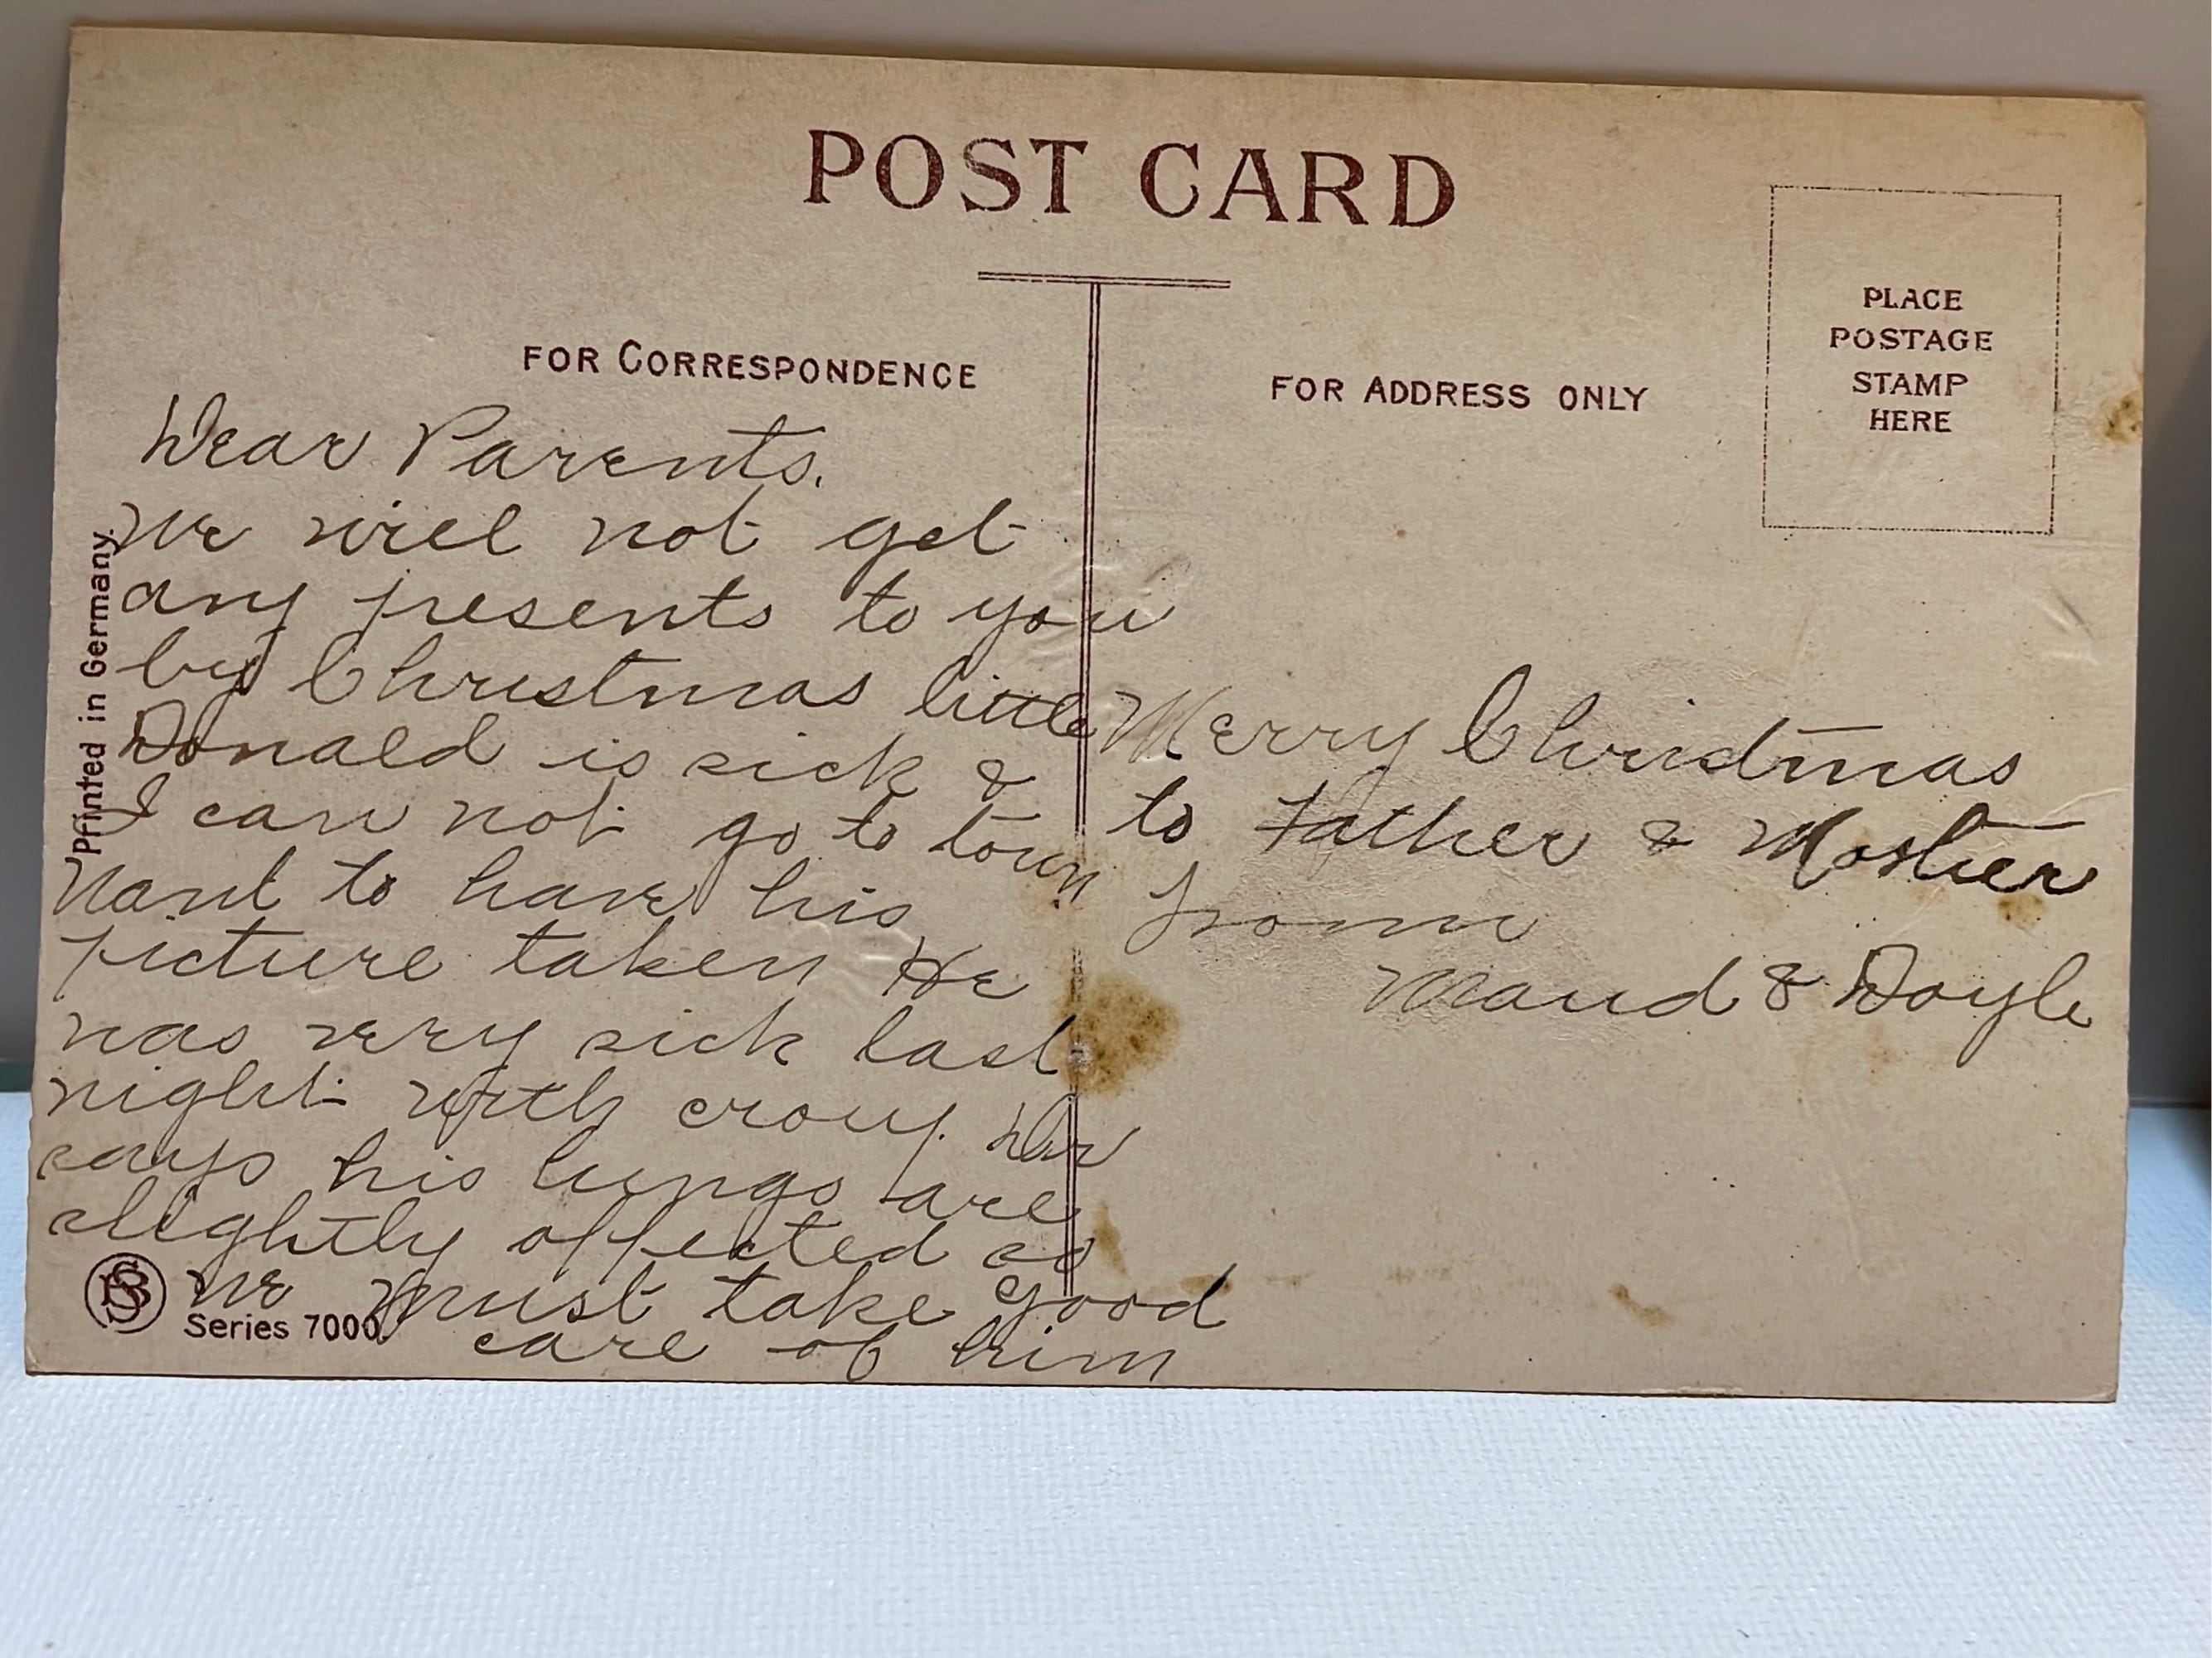 POST CARD
FOR CORRESPONDENCE
Dear Parents.
We will not get
any presents to you
by Christmas little
Donald is sick &
I can not go to town
Want to have his
picture taken He
was very sick last
night with croup. Dr
says his lungs are
slightly affected so
we must take good
care of him
Printed in Germany.
Series 7000
FOR ADDRESS ONLY
PLACE
POSTAGE
STAMP
HERE
Merry Christmas
to Father & Mother
from
Maud & Doyle